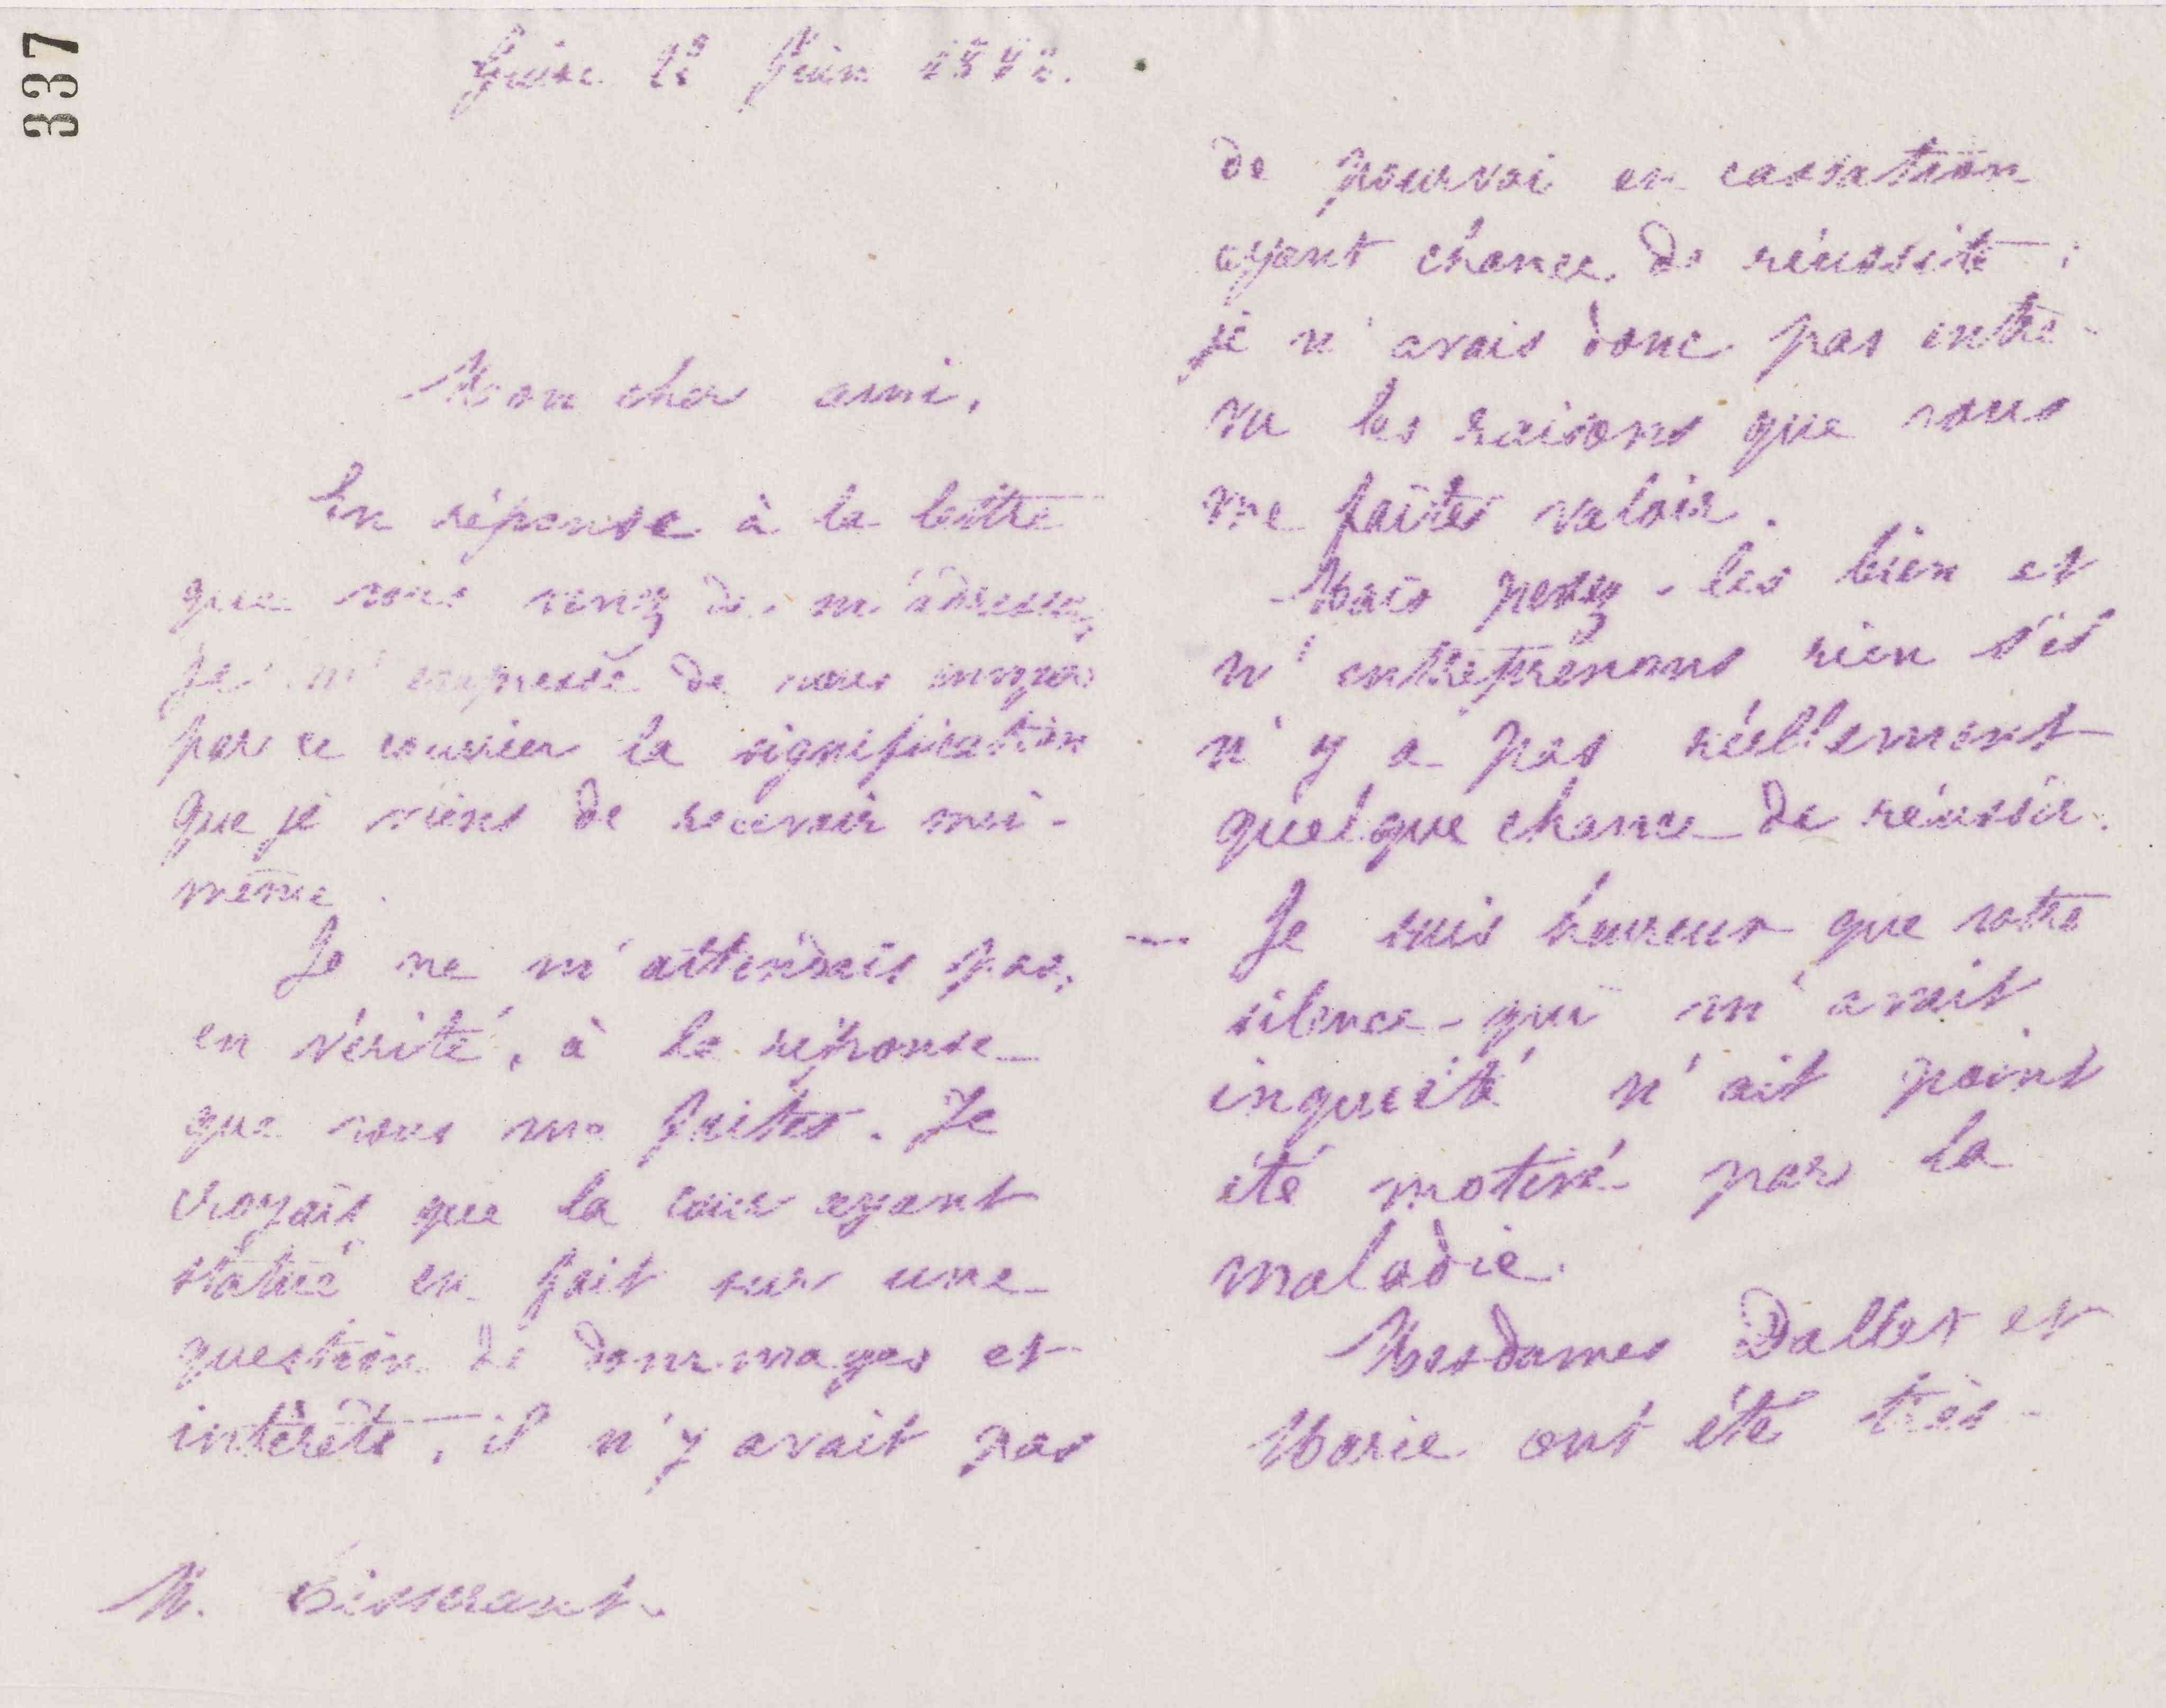 337
Guise 12 Juin 1872.
Mon cher ami,
En réponse à la lettre
que vous venez de m'adresser,
je m'empresse de vous envoyer
par ce courrier la signification
que je viens de recevoir moi-
même.
Je ne m'attendais pas,
en vérité, à la réponse
que vous me faites. Je
croyais que la cour ayant
statué en fait sur une
question de dommages et
intérêts, il n'y avait pas
M. Tisserant.
de pourvoi en cassation
ayant chance de réussite ;
je n'avais donc pas entre-
vu les raisons que vous
me faites valoir.
Mais pesez-les bien et
n'entreprenons rien s'il
n'y a pas réellement
quelque chance de réussir.
Je suis heureux que votre
silence qui m'avait
inquiété n'ait point
été motivé par la
maladie.
Mesdames Dallet et
Marie ont été très-